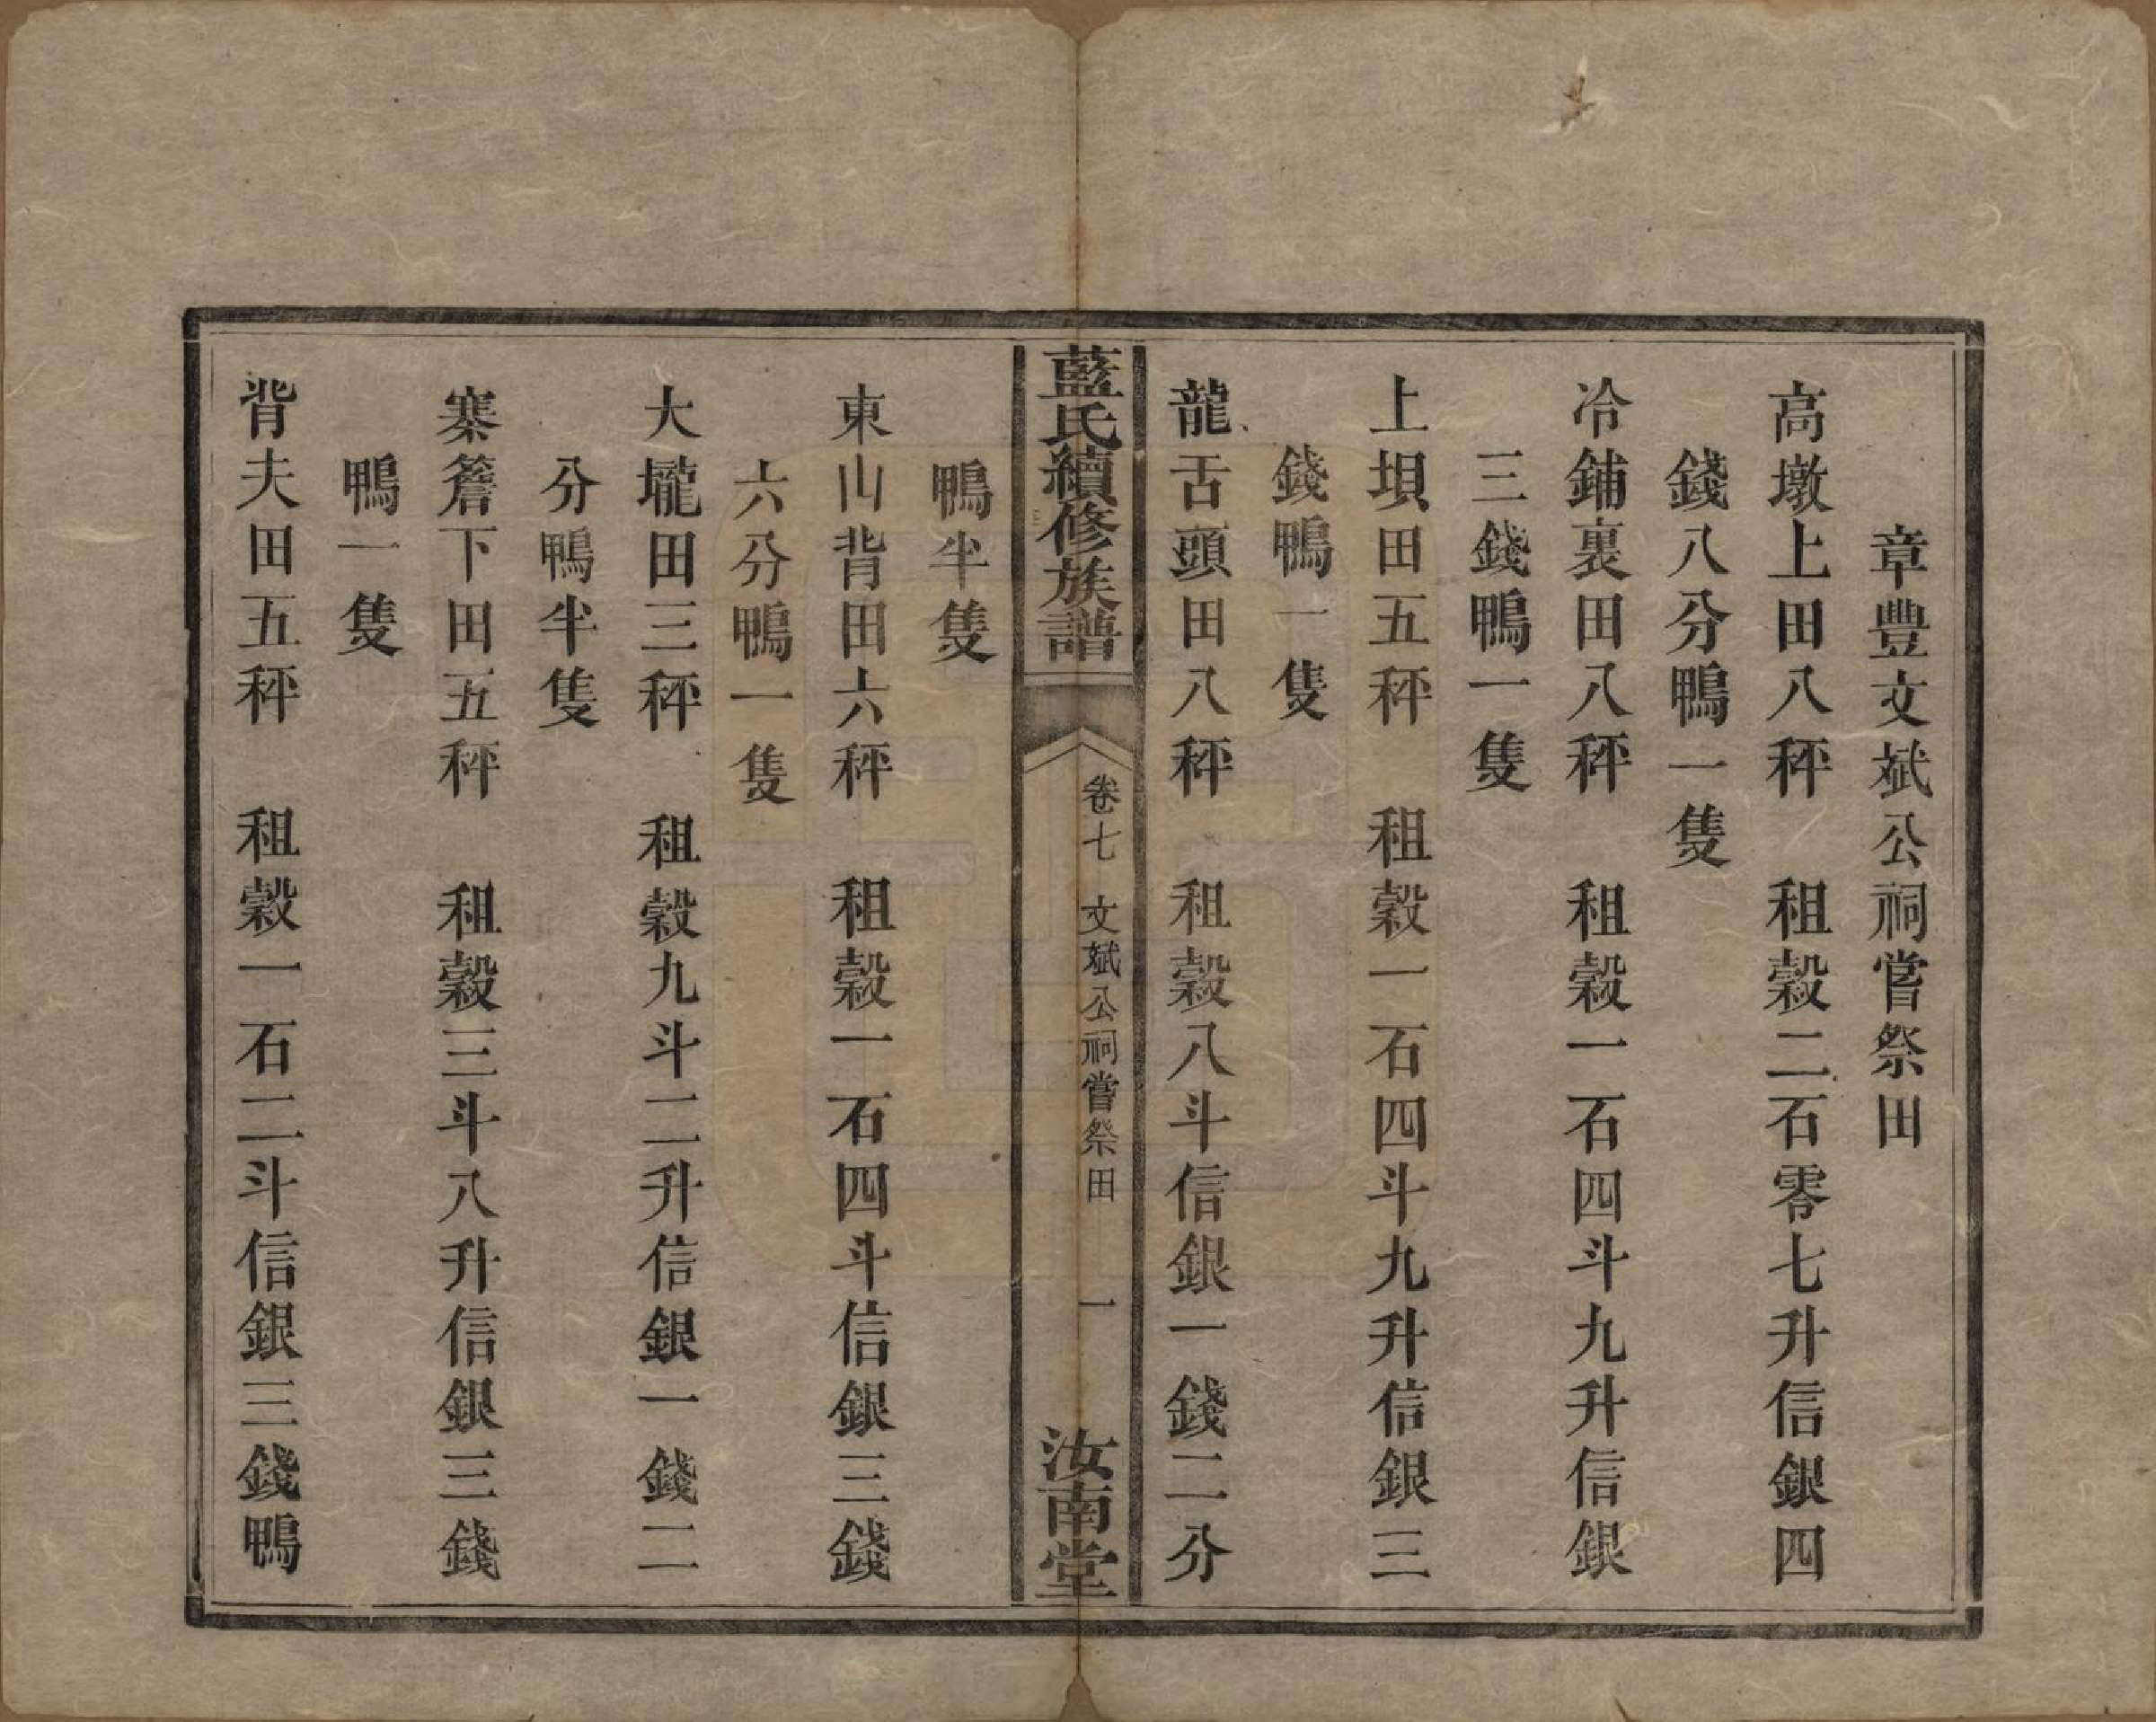 章豐文斌公祠嘗祭田
高墩上田八秤　租穀二石零七升信銀四
錢八分鴨一隻
冷鋪裏田八秤　租穀一石四斗九升信銀
三錢鴨一隻
上垻田五秤　租穀一石四斗九升信銀三
錢鴨一隻
龍舌頭田八秤　租穀八斗信銀一錢二分
藍氏續修族譜　卷七　文斌公祠嘗祭田　一　汝南堂
鴨半隻
東山背田六秤　租穀一石四斗信銀三錢
六分鴨一隻
大壠田三秤　租穀九斗二升信銀一錢二
分鴨半隻
寨簷下田五秤　租穀三斗八升信銀三錢
鴨一隻
背夫田五秤　租穀一石二斗信銀三錢鴨